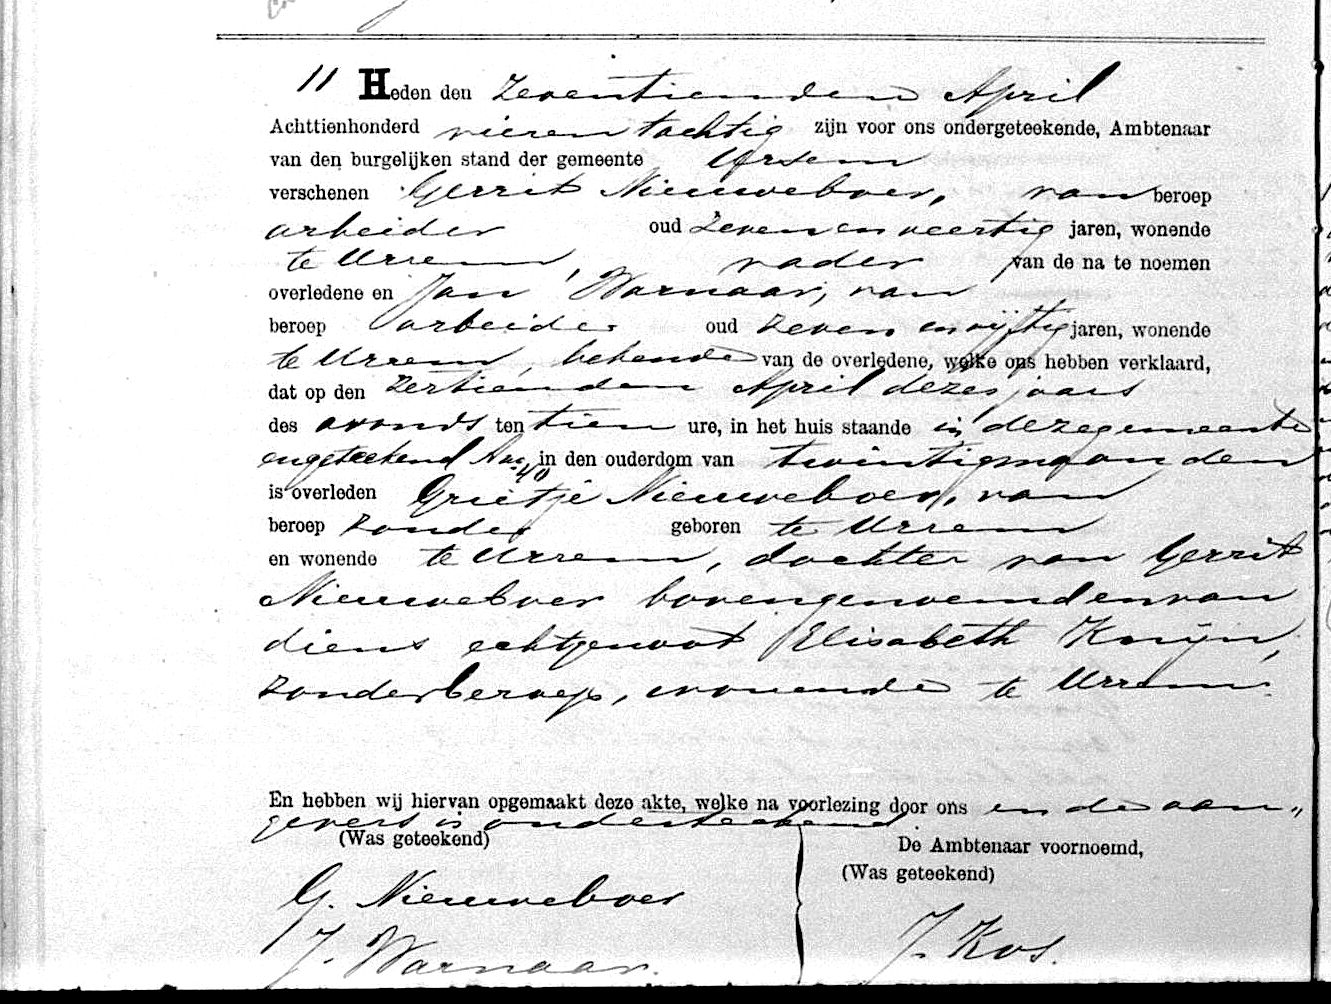 11 Heden den zeventienden April
Achttienhonderd vieren tachtig zijn voor ons ondergeteekende, Ambtenaar
van den burgelijken stand der gemeente Ursem
verschenen Gerrit Nieuweboer, van beroep
arbeider oud zeven en veertig jaren, wonende
te Ursem, vader van de na te noemen
overledene en Jan Warnaar, van
beroep arbeider oud zeven en vijftig jaren, wonende
te Ursem, bekende van de overledene, welke ons hebben verklaard,
dat op den April dezes jaars
des avonds ten tien ure, in het huis staande in deze gemeente
in den ouderdom van twintig maanden
is overleden Grietje Nieuweboer, van
beroep zonder geboren te Ursem
en wonende te Ursem, dochter van Gerrit
Nieuweboer bovengenoemd en van
diens echtgenoot Elisabeth Knijn,
zonder beroep, wonende te Ursem.
En hebben wij hiervan opgemaakt deze akte, welke na voorlezing door ons en de aan„
gevers is onderteekend
(Was geteekend) De Ambtenaar voornoemd,
(Was geteekend)
G. Nieuweboer
J. Warnaar. J. Kos.